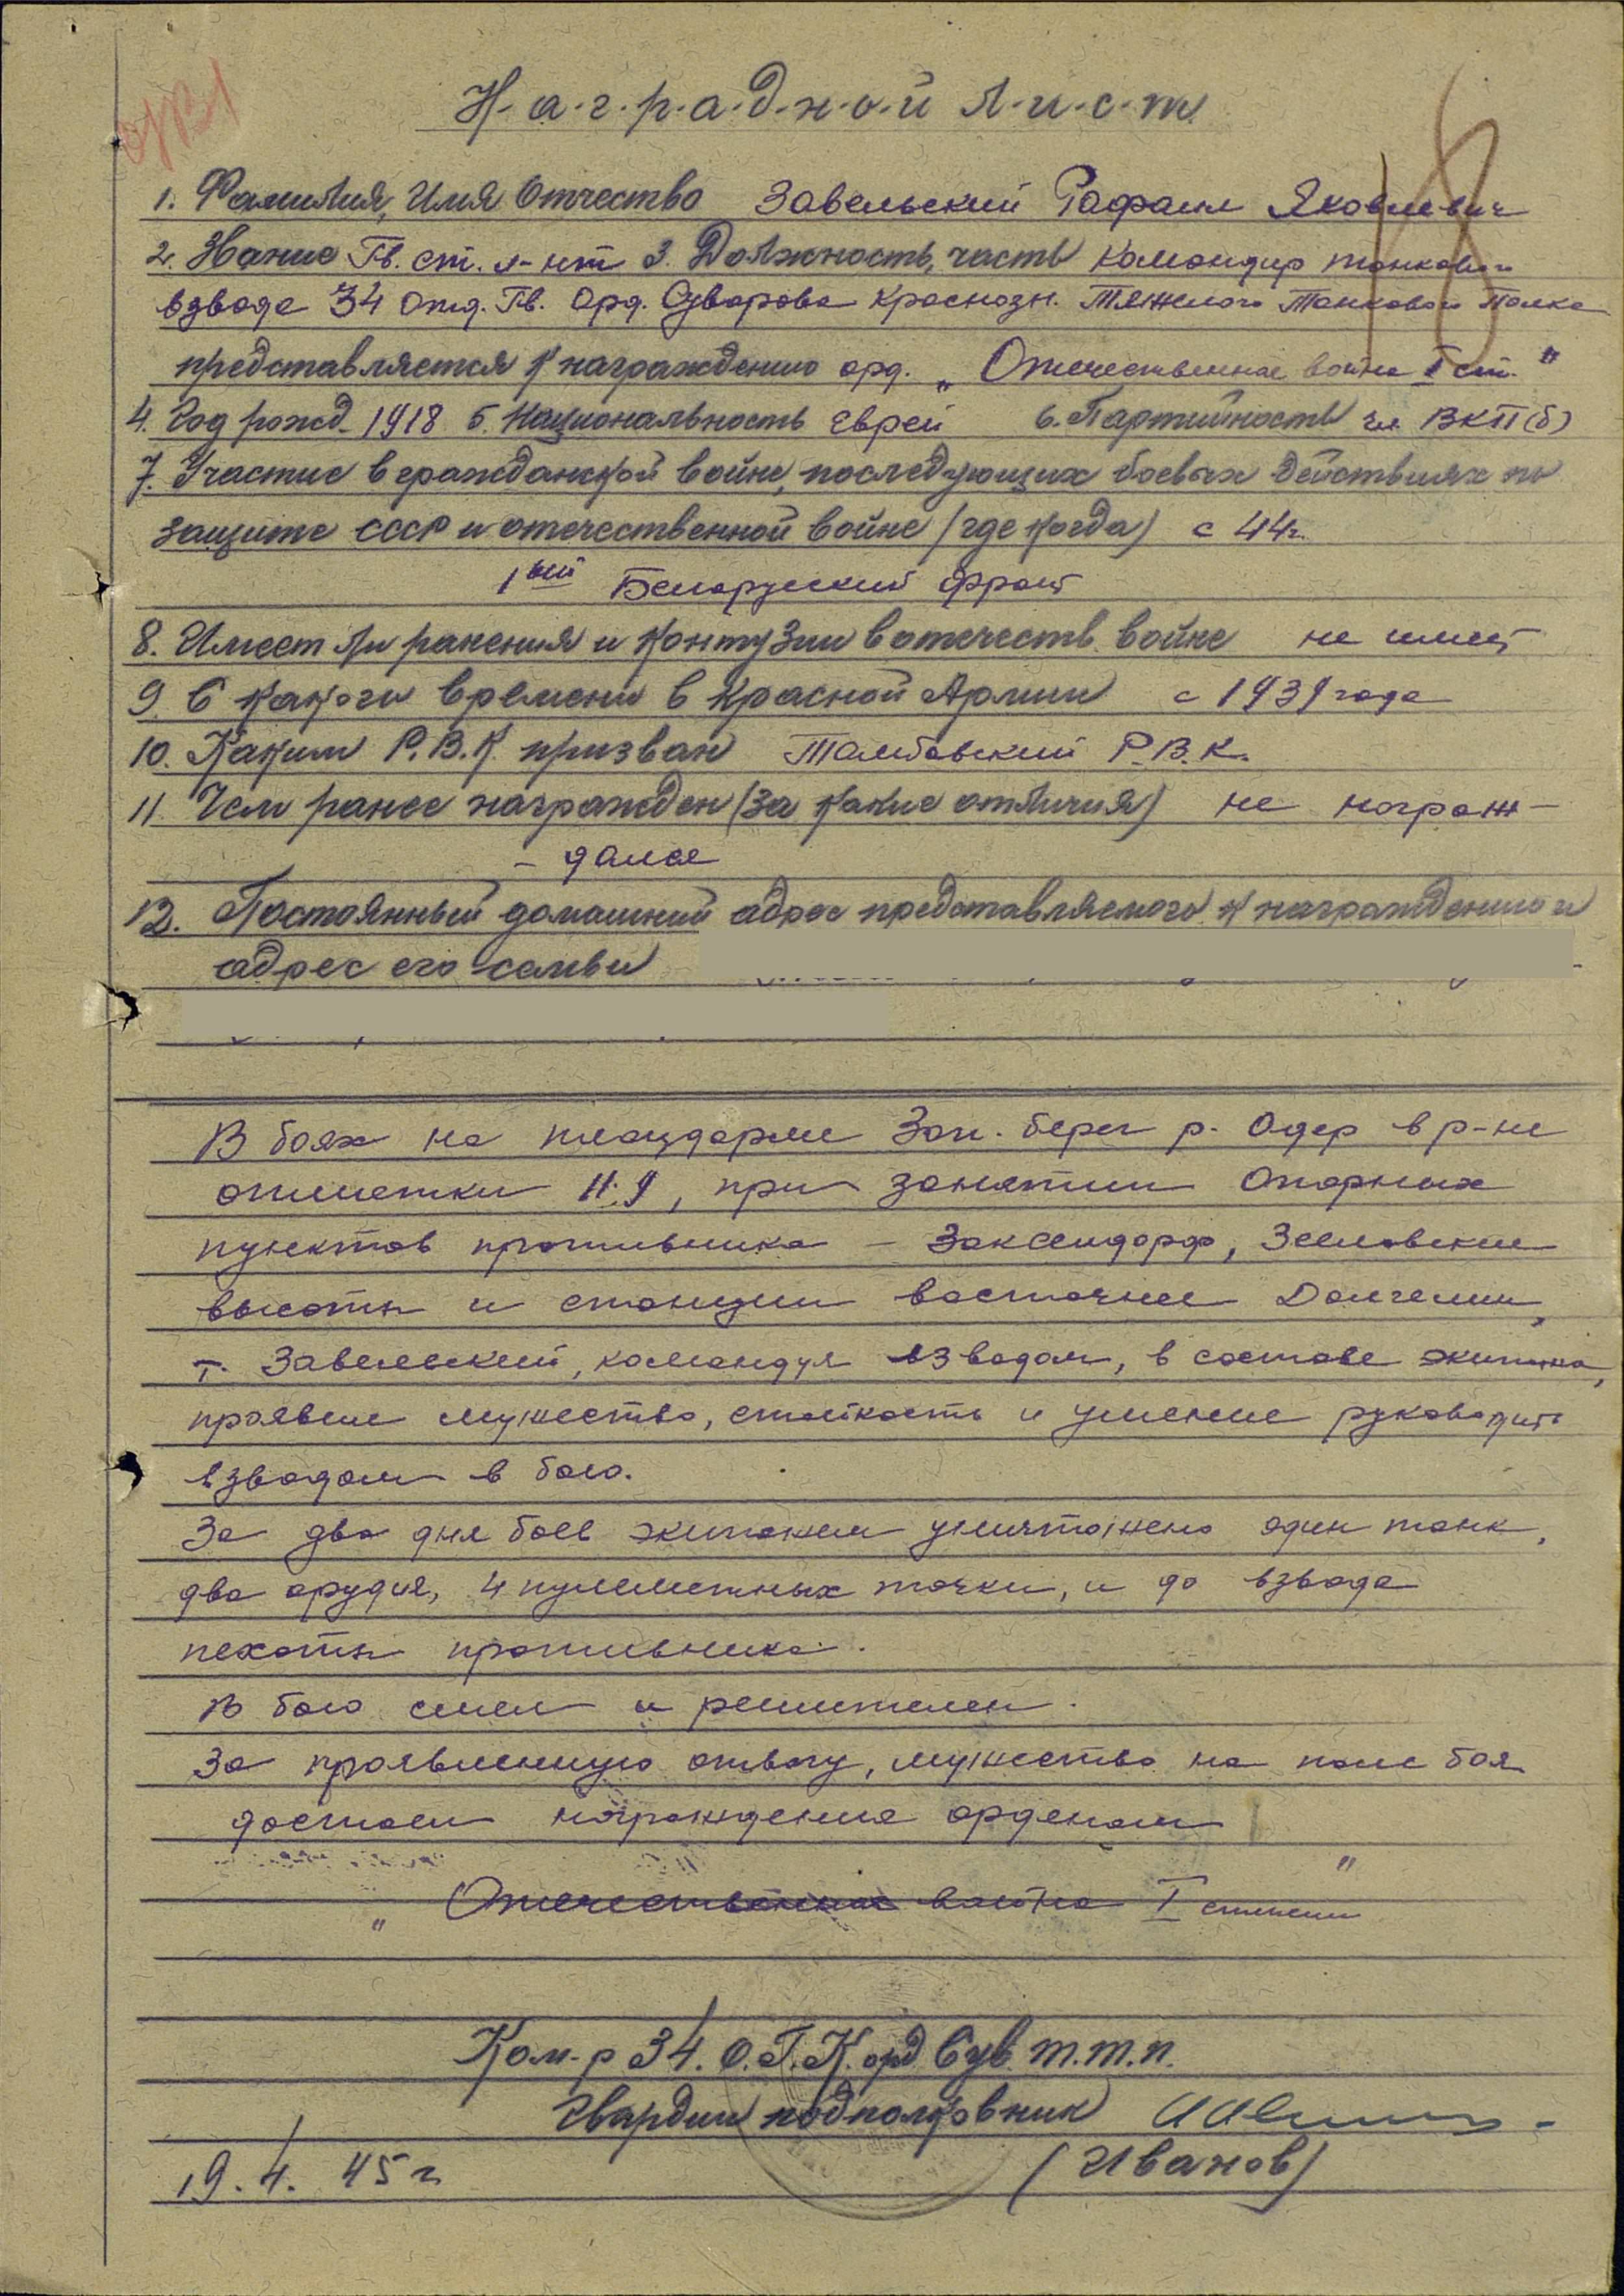 Н-а-г-р-а-д-н-о-й л-и-с-т
1. Фамилия, Имя Отчество Завельский Рафаил Яковлевич
2. Звание Гв. ст. л-нт 3. Должность, часть Командир танкового
взвода 34 Отд. Гв. Орд. Суворова Краснозн. Тяжелого Танкового Полка
представляется к награждению орд. „Отечественная война I ст."
4. Год рожд. 1918 5. Национальность Еврей 6. Партийность чл. ВКП(б)
7. Участие в гражданской войне, последующих боевых действиях по
защите СССР и отечественной войне (где когда) с 44г.
1ый Белорусский фронт
8. Имеет ли ранения и контузии в отечеств. войне не имеет
9. С какого времени в Красной Армии с 1939 года
10. Каким Р.В.К. призван Тамбовский Р.В.К.
11. Чем ранее награжден (за какие отличия) не награж-
- дался
12. Постоянный домашний адрес представляемого к награждению и
адрес его семьи
В боях на плацдарме Зап. берег р. Одер в р-не
отметки 11.9, при занятии Опорных
пунктов противника – Заксендорф, Зееловские
высоты и станции восточнее Долгелин,
т. Завельский, командуя взводом, в составе экипажа,
проявил мужество, стойкость и умение руководить
взводом в бою.
За два дня боев экипажем уничтожено один танк,
два орудия, 4 пулеметных точки, и до взвода
пехоты противника.
В бою смел и решителен.
За проявленную отвагу, мужество на поле боя
достоин награждения орденом
„Отечественная война I степени"
Ком-р 34. О.Г.К. орд Сув. т.т.п.
Гвардии подполковник
(Иванов)
19.4. 45 г